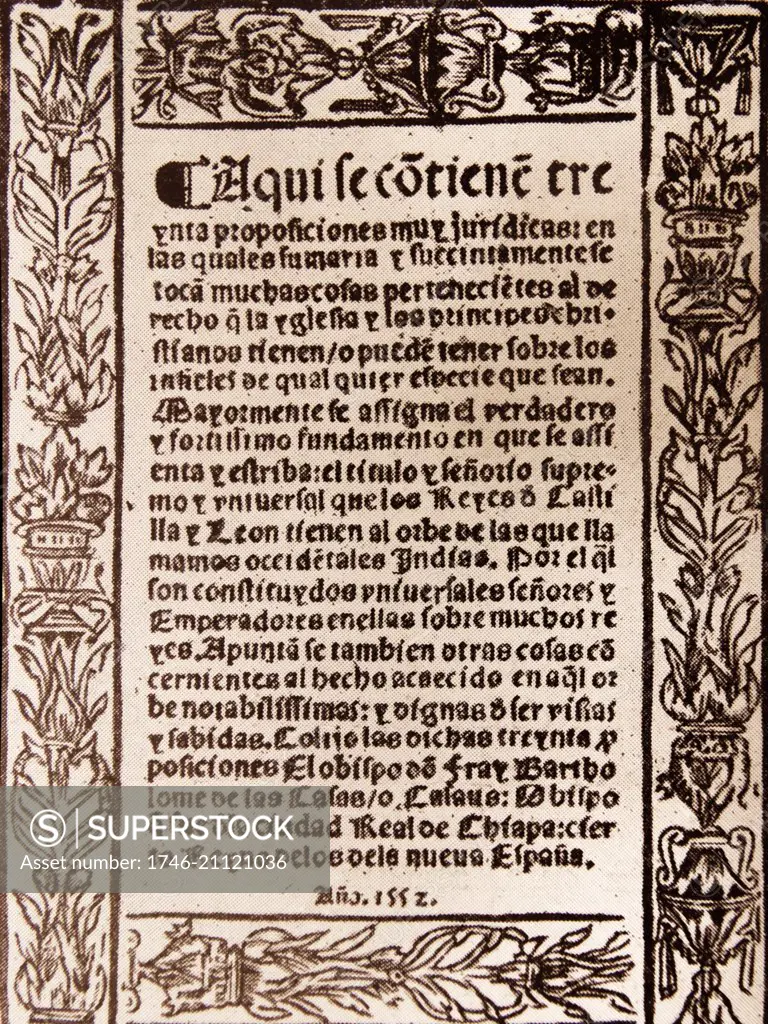 Aqui se cõtienẽ tre
ynta proposiciones muy jurídicas: en
las quales sumaria y succintamente se
tocã muchas cosas perteneciẽtes al de
recho q̃ la yglesia y los principes chri-
stianos tienen/o puedẽ tener sobre los
infieles de qual quier especie que sean.
Mayormente se assigna el verdadero
y fortissimo fundamento en que se assi
enta y estriba: el titulo y señorio supre-
mo y vniuersal que los Reyes õ Casti
lla y Leon tienen al orbe de las que lla
mamos occidẽtales Indias. Por el q̃l
son constituydos vniuersales señores y
Emperadores en ellas sobre muchos re
yes. Apuntã se tambien otras cosas cõ
cernientes al hecho acaecido en aq̃l or
be notabilissimas: y dignas õ ser vistas
y sabidas. Colijo las dichas treynta ꝓ
posiciones El obispo dõ fray Bartho
lome de las Casas/o Casaus: Obispo
dad Real de Chiapa: cier
de los dela nueua España.
Año. 1552.
SUPERSTOCK
Asset number: 1746-21121036